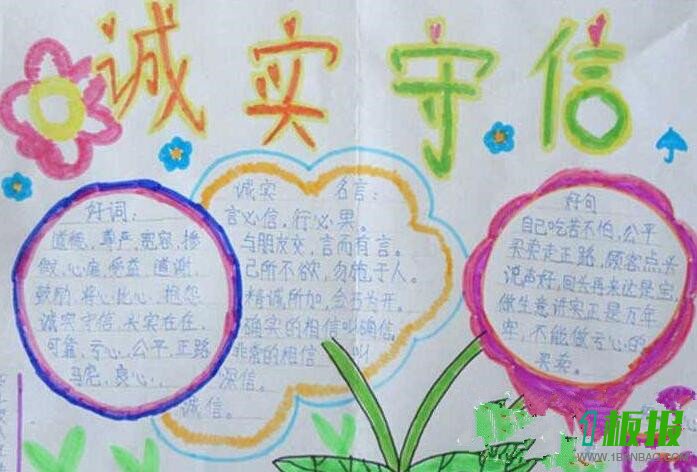 诚实守信
好词:
道德,尊严,宽容,掺
假,心虚,受益,道谢,
鼓励,将心比心,抱怨
诚实守信,长实在在,
可靠,亏心,公平,正路
马虎,良心,
诚实 名言:
言必信,行必果。
与朋友交,言而有言。
己所不欲,勿施于人。
精诚所加,金石为开。
确实的相信叫确信,
非常的相信 叫
深信。
诚信。
好句
自己吃苦不怕,公平
买卖走正路,顾客点长
说声好,回长再来让是宝,
做生意讲实正是万年
牢,不能做亏心的
买卖。
板报
WWW.1BANBAO.COM